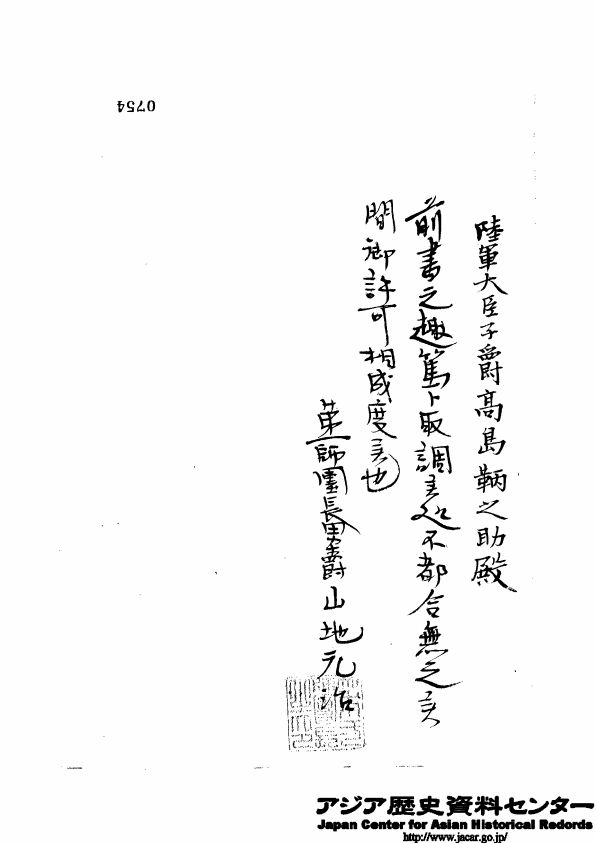 陸軍大臣子爵高島鞆之助殿
前書之趣篤ト取調候処不都合無之候
間御許可相成度候也
第一師團長男爵山地元治
0754
アジア歴史資料センター
Japan Center for Asian Historical Redords
http://www.jacar.go.jp/